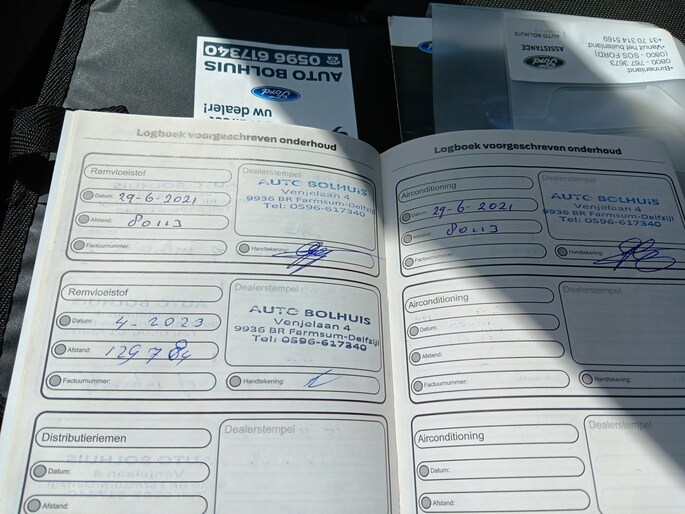 ☎ 0596 617340
AUTO BOLHUIS
Ford
uw dealer!
ASSISTANCE
AUTO BOLHUIS
Ford
•Binnenland
0800 - 767 3673
(0800 - SOS FORD)
•Vanuit het buitenland
+31 70 314 5169
Logboek voorgeschreven onderhoud
Remvloeistof
Datum: 29-6-2021
Afstand: 80113
Factuurnummer:
Dealerstempel
AUTO BOLHUIS
Venjelaan 4
9936 BR Farmsum-Delfzijl
Tel: 0596-617340
Handtekening:
Remvloeistof
Datum: 4-2023
Afstand: 129784
Factuurnummer:
Dealerstempel
AUTO BOLHUIS
Venjelaan 4
9936 BR Farmsum-Delfzijl
Tel: 0596-617340
Handtekening:
Distributieriemen
Datum:
Afstand:
Dealerstempel
Logboek voorgeschreven onderhoud
Airconditioning
Datum: 29-6-2021
Afstand: 80113
Factuurnummer:
Dealerstempel
AUTO BOLHUIS
Venjelaan 4
9936 BR Farmsum-Delfzijl
Tel: 0596-617340
Handtekening:
Airconditioning
Datum:
Afstand:
Factuurnummer:
Dealerstempel
Handtekening:
Airconditioning
Datum:
Afstand:
Dealerstempel